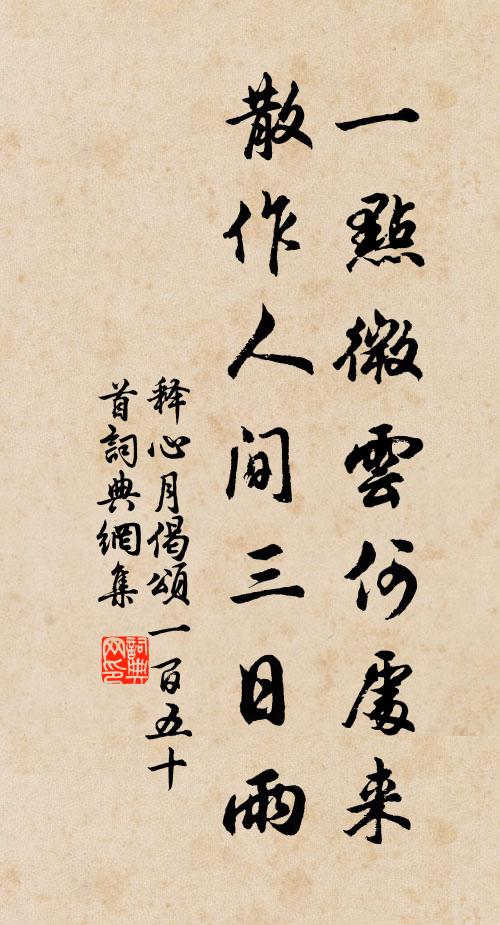 一點微雲何處来
散作人間三日雨
释心月偈頌一百五十
首詞典網集
詞典
网印